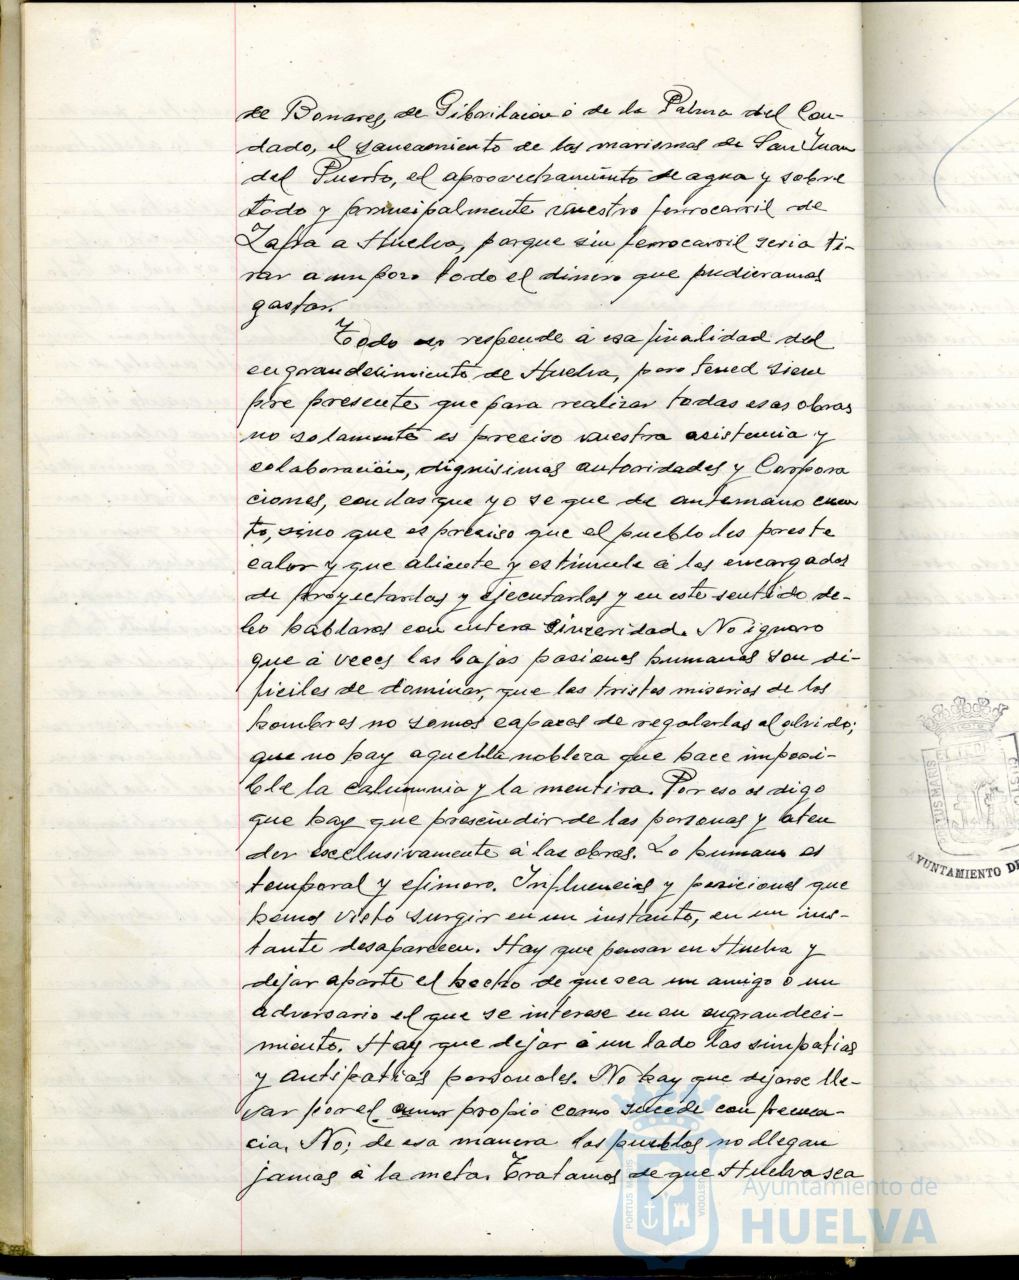 de Bonares, de Gibraleon ó de la Palma del Con-
dado, el saneamiento de las marismas de San Juan
del Puerto, el aprovechamiento de agua y sobre
todo y principalmente nuestro ferrocarril de
Zafra a Huelva, porque sin ferrocarril seria ti-
rar a un pozo todo el dinero que pudieramos
gastar.
Todo eso responde á esa finalidad del
engrandecimiento de Huelva, pero tened siem
pre presente que para realizar todas esas obras
no solamente es preciso vuestra asistencia y
colaboración, dignisimas autoridades y Corpora
ciones, con las que yo se que de antemano cuen
to, sino que es preciso que el pueblo les preste
calor y que aliente y estimule á los encargados
de proyectarlas y ejecutarlas y en este sentido de-
bo hablaros con entera sinceridad. No ignoro
que á veces las bajas pasiones humanas son di-
ficiles de dominar, que las tristes miserias de los
hombres no somos capaces de regalarlas al olvido;
que no hay aquella nobleza que hace imposi-
ble la calumnia y la mentira. Por eso os digo
que hay que prescindir de las personas y aten
der esclusivamente á las obras. Lo humano es
temporal y efimero. Influencias y posiciones que
hemos visto surgir en un instante, en un ins-
tante desaparecen. Hay que pensar en Huelva y
dejar aparte el hecho de que sea un amigo o un
adversario el que se interese en su engrandeci-
miento. Hay que dejar á un lado las simpatias
y antipatias personales. No hay que dejarse lle-
var por el amor propio como sucede con frecuen-
cia. No; de esa manera los pueblos no llegan
jamas á la meta. Tratamos de que Huelva sea
AYUNTAMIENTO DE
PORTUS MARIS
CUSTODIA
Ayuntamiento de
HUELVA